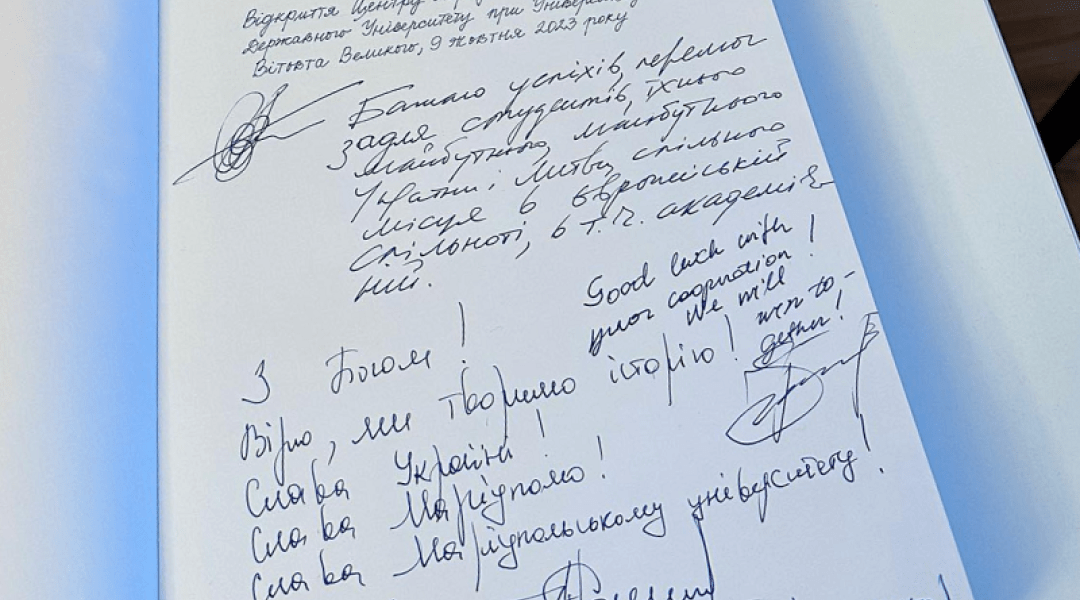 Відкриття Центру
Державного Університету при Університе
Вітовта Великого, 9 жовтня 2023 року
Бажаю успіхів, перемог
задля студентів, їхнього
майбутнього, майбутнього
України і Литви, спільного
місця в європейській
спільноті, в т.ч. академіч-
ній.
Good luck with
your cooperation!
We will
win to-
gether!
З Богом!
Вірю, ми творимо історію!
Слава Україні!
Слава Маріуполю!
Слава Маріупольському університету!